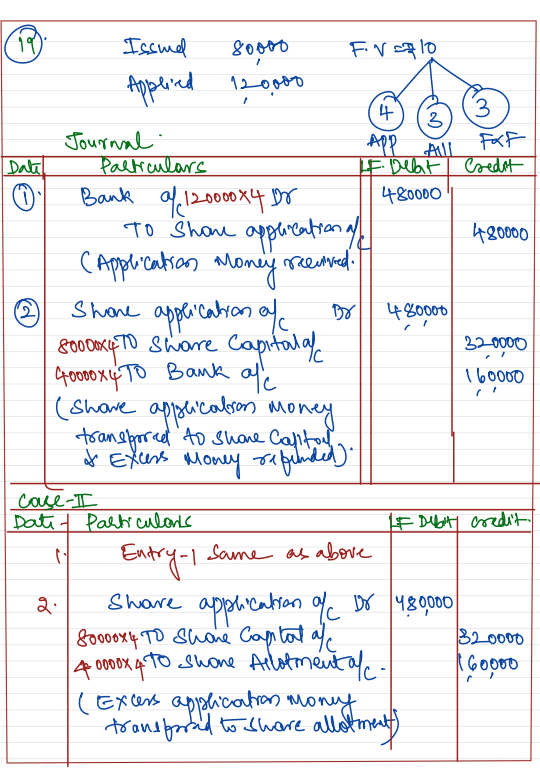 19.
Issued 80,000 F.V = ₹10
Applied 120,000
4 3 3
App All F&F
Journal.
Date Particulars LF. Debit Credit
1. Bank a/c 120000×4 Dr 480000
To Share application a/c 480000
(Application Money received.
2 Share application a/c Dr 480,000
80000×4 To Share Capital a/c 320000
40000×4 To Bank a/c 160000
(Share application Money
transferred to share Capital
& Excess Money refunded).
Case-II
Date - Particulars LF Debit Credit.
1. Entry-1 Same as above
2. Share application a/c Dr 480000
80000×4 To Share Capital a/c 320000
40000×4 To Share Allotment a/c. 160000
(Excess application Money
transferred to share allotment)